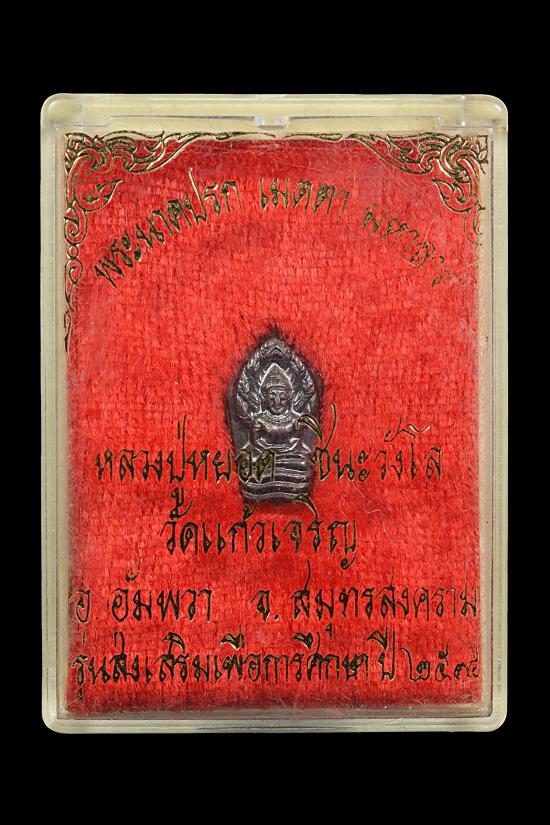 พระนาคปรก เมตตา มหาลาภ
หลวงปู่หยอด ชินะวังโส
วัดแก้วเจริญ
อ. อัมพวา จ. สมุทรสงคราม
รุ่นส่งเสริมเพื่อการศึกษา ปี ๒๕๓๕